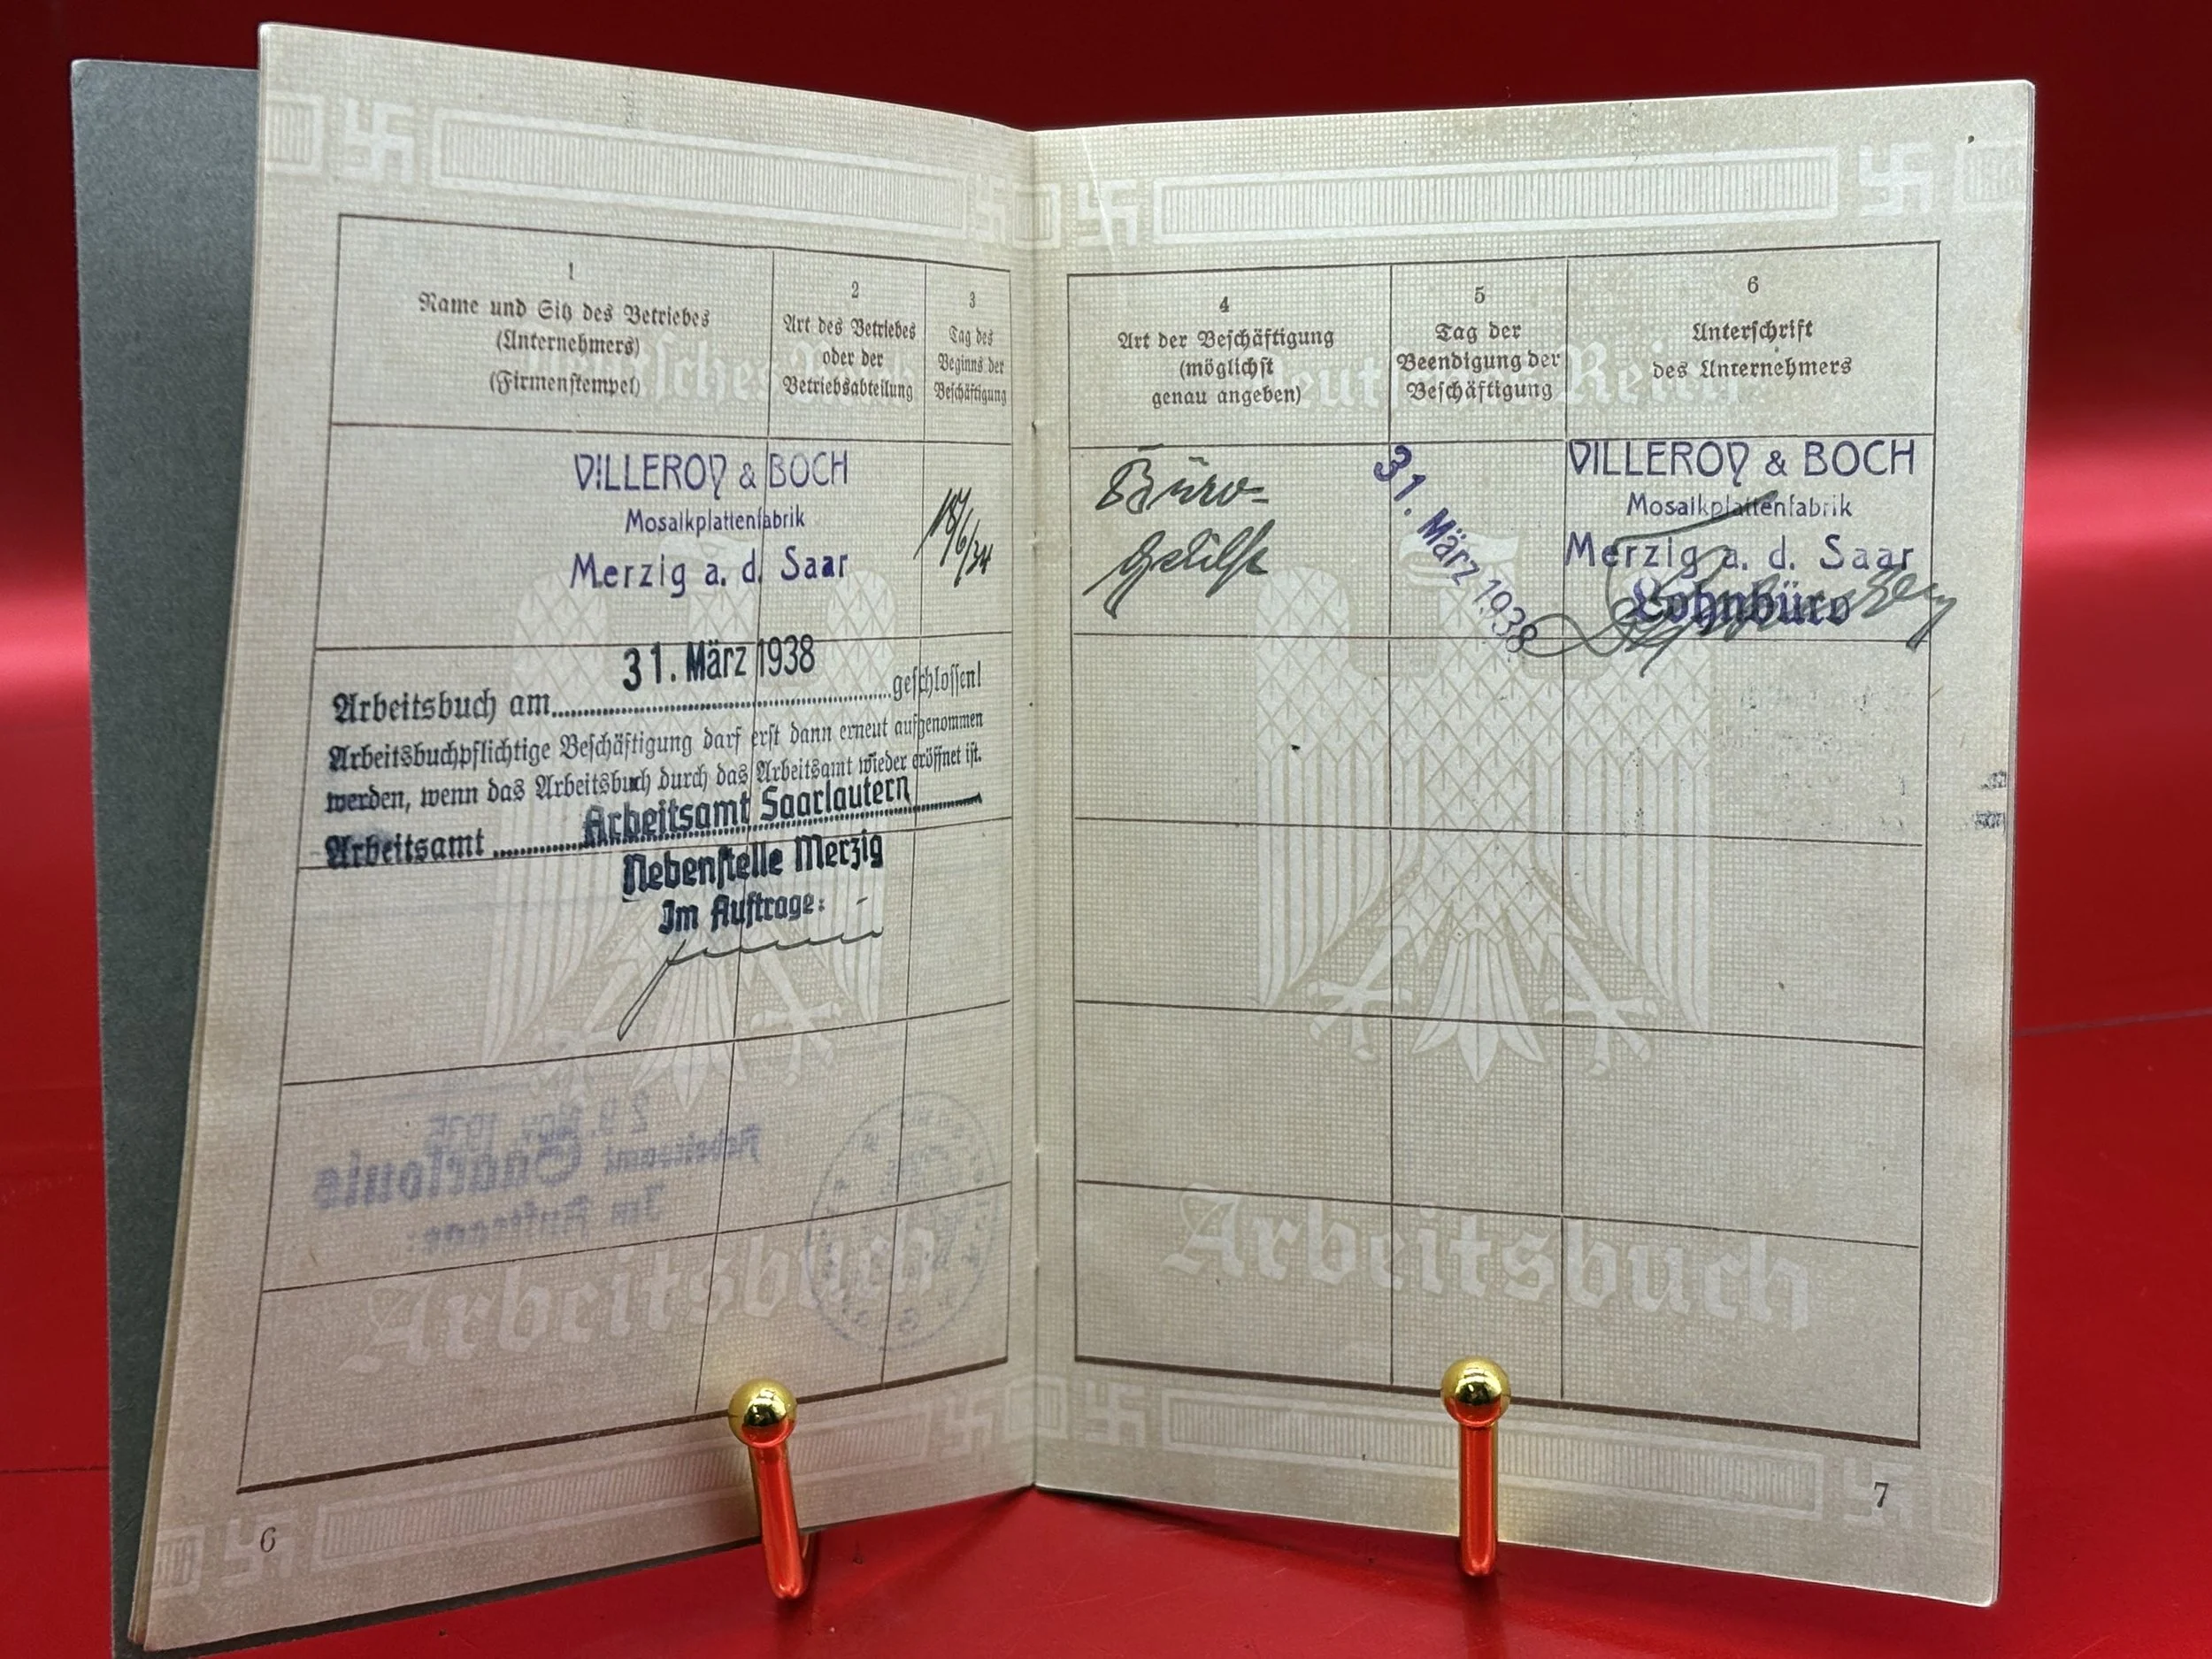 1
Name und Sitz des Betriebes
(Unternehmers)
(Firmenstempel)
2
Art des Betriebes
oder der
Betriebsabteilung
3
Tag des
Beginns der
Beschäftigung
VILLEROY & BOCH
Mosaikplattenfabrik
Merzig a. d. Saar
18/6/34
31. März 1938
Arbeitsbuch am geschlossen!
Arbeitsbuchpflichtige Beschäftigung darf erst dann erneut aufgenommen
werden, wenn das Arbeitsbuch durch das Arbeitsamt wieder eröffnet ist.
Arbeitsamt Arbeitsamt Saarlautern
Nebenstelle Merzig
Im Auftrage:
29. Nov. 1935
Arbeitsamt Saarlouis
Im Auftrage:
Arbeitsbuch
6
4
Art der Beschäftigung
(möglichst
genau angeben)
5
Tag der
Beendigung der
Beschäftigung
6
Unterschrift
des Unternehmers
Deutsches Reich
Büro-
Gehilfe
31. März 1938
VILLEROY & BOCH
Mosaikplattenfabrik
Merzig a. d. Saar
Lohnbüro
Arbeitsbuch
7